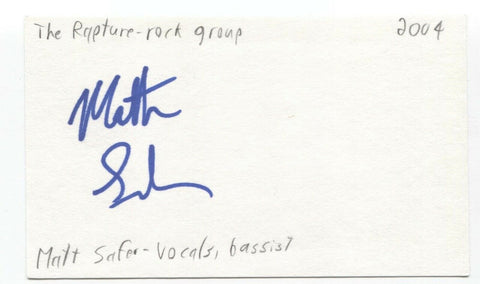 The Rapture-rock group 2004
Matth
Safer
Matt Safer-vocals, bassist